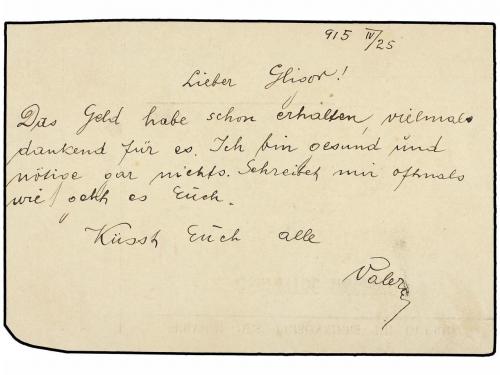 915 IV/25
Lieber Glisor!
Das Geld habe schon erhalten, vielmals
dankend für es. Ich bin gesund und
nötige gar nichts. Schreibet mir oftmals
wie geht es Euch.
Küsst Euch alle